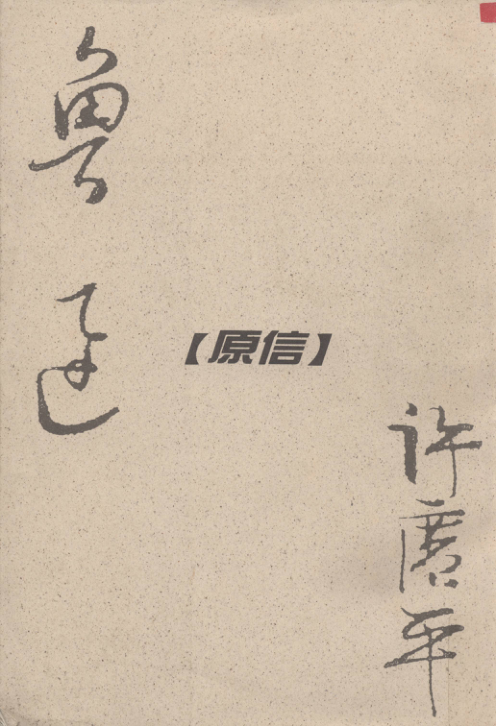 鲁迅
【原信】
许广平